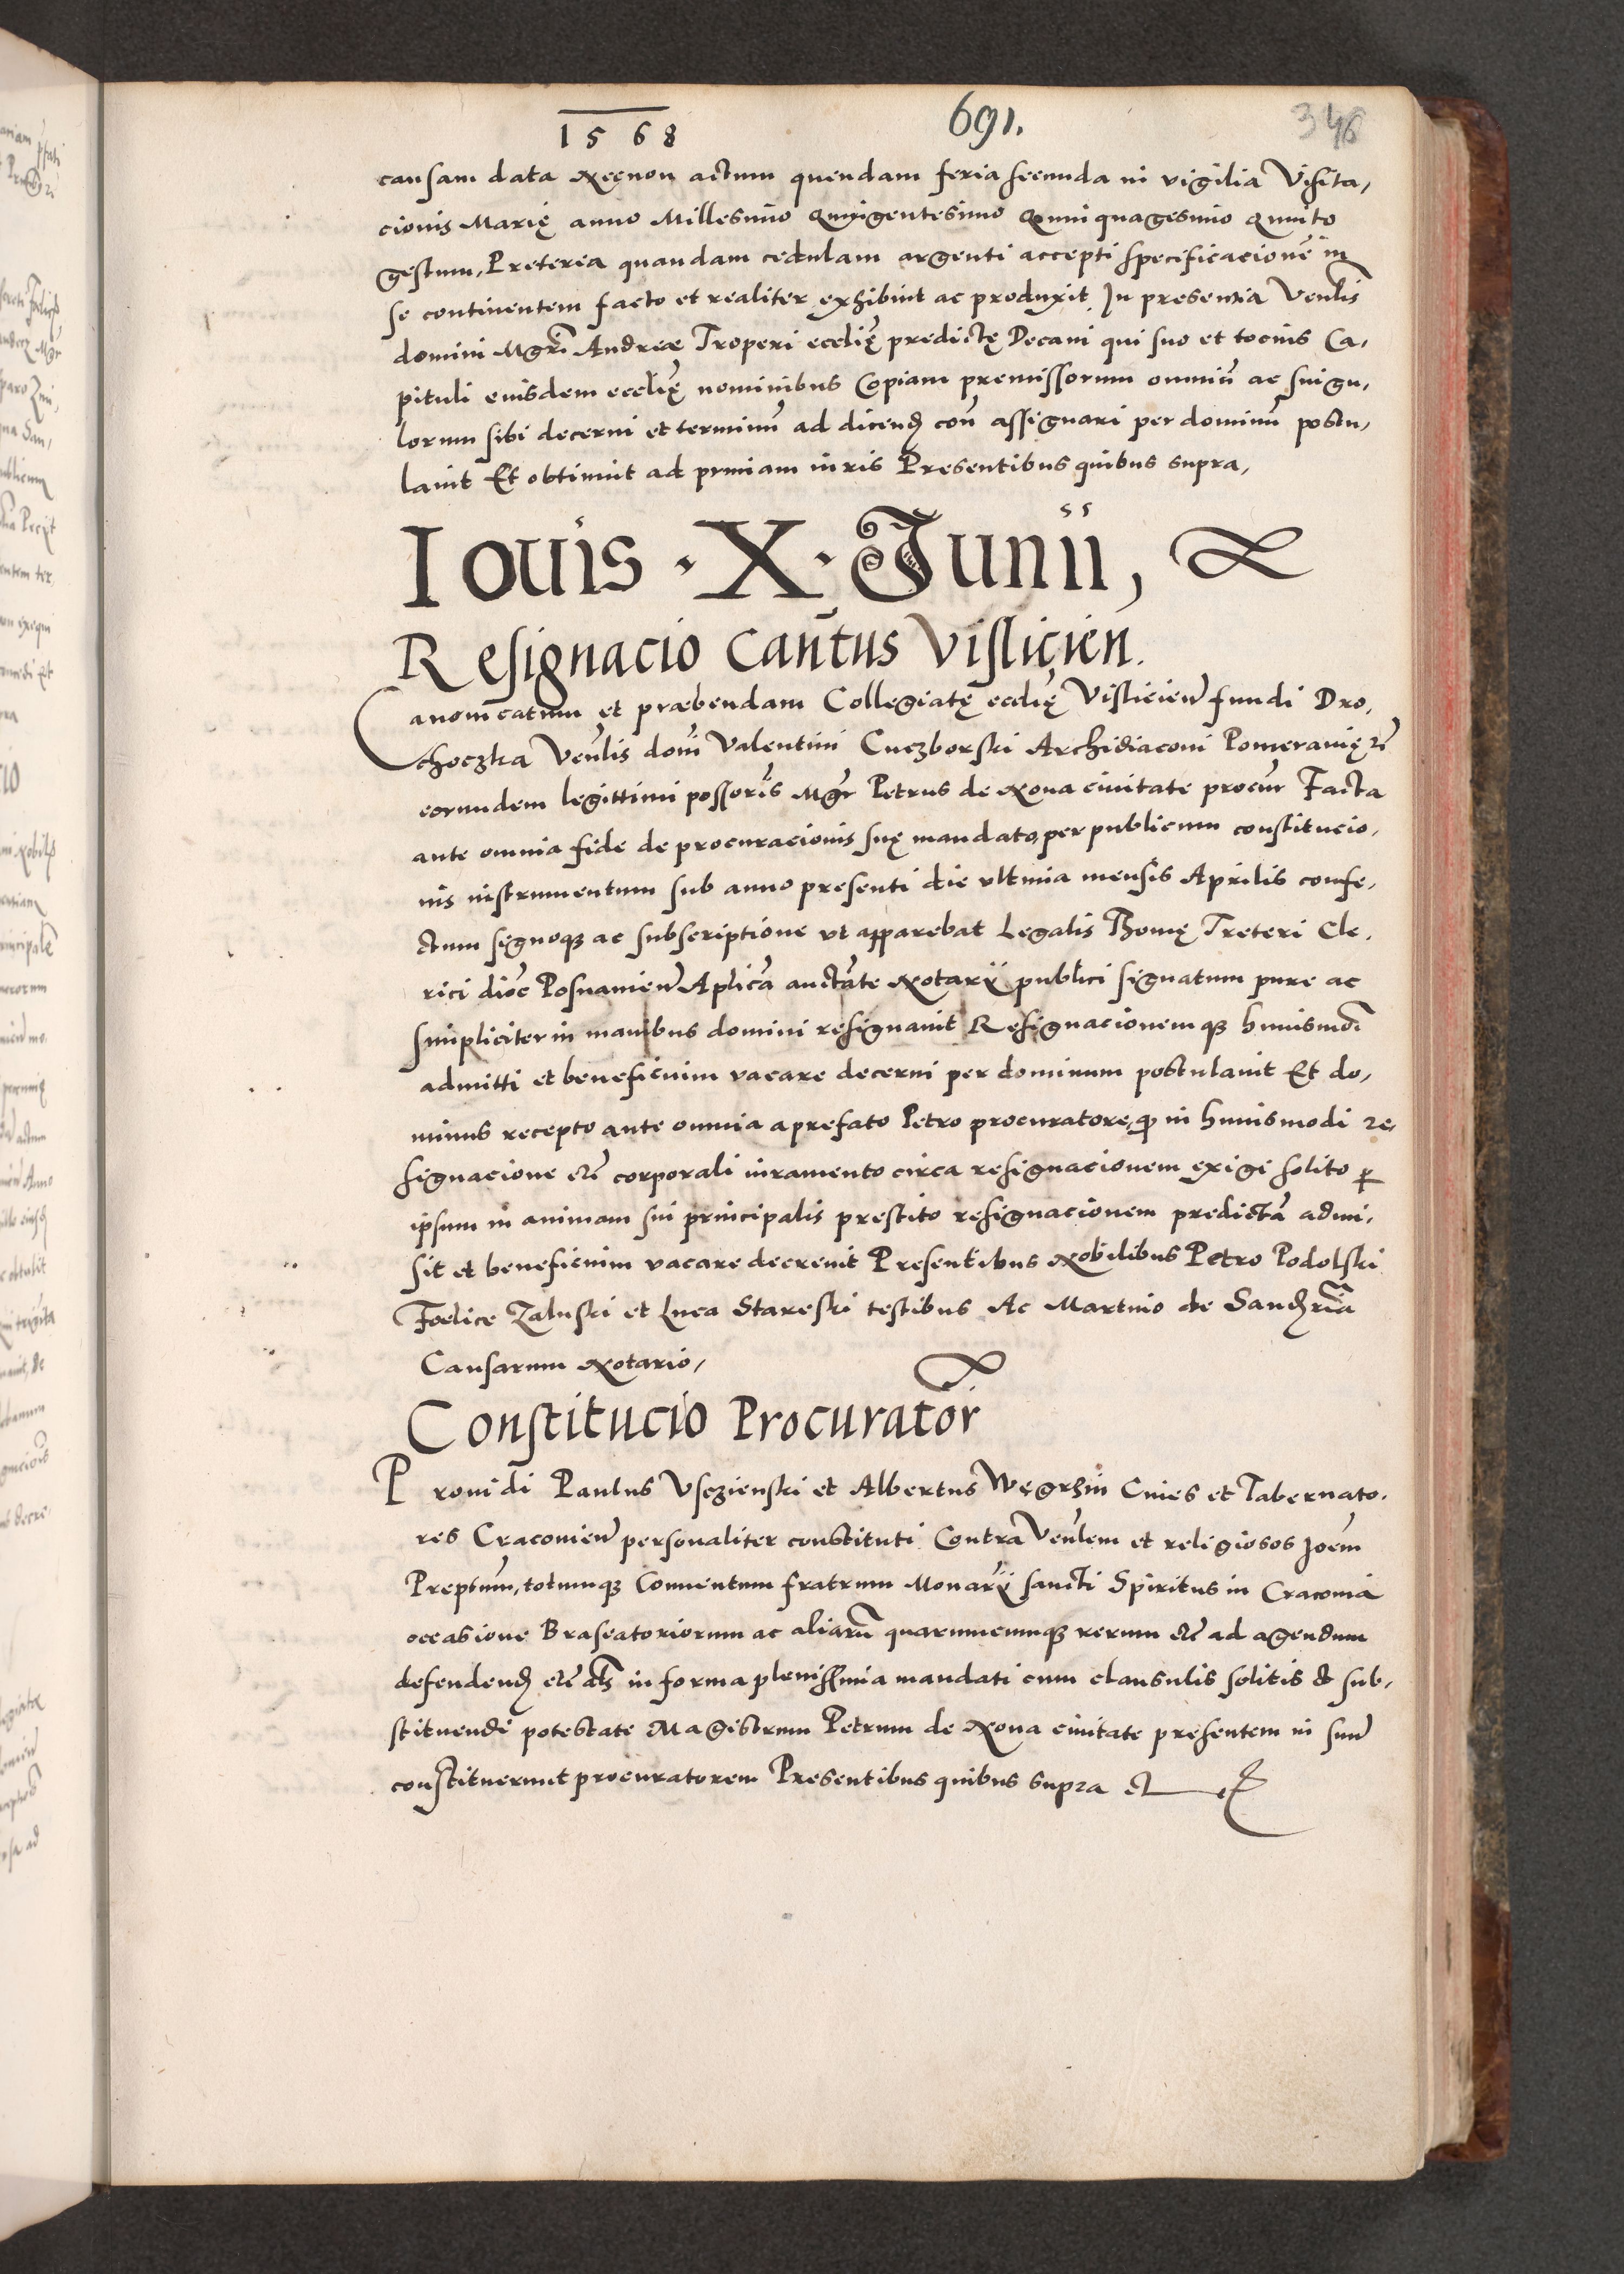 1568 691. 346
causam data Necnon actum quendam feria secunda in vigilia Visita,
cionis Marię anno Millesimo Quingentesimo Quinquagesimo Quinto
gestum, Preterea quandam cedulam argenti accepti specificacionē in
se continentem facto et realiter exhibuit ac produxit In presentia Venlis
domini Mgri Andreæ Troperi ecclię predictę Decani qui suo et tocius Ca,
pituli eiusdem eccłię nominibus Copiam premissorum omniū ac singu,
lorum sibi decerni et terminū ad dicend con assignari per dominū postu,
lauit Et obtinuit ad primam iuris Presentibus quibus supra,
Iouis . X . Junii,
Resignacio Cantus Vislicien.
Canonicatum et præbendam Collegiatę ecclię Vislicien fundi Dro,
choczka Venlis domi Valentini Cuczborski Archidiaconi Pomeranię etc
eorundem legittimi possoris Mgr Petrus de Noua ciuitate procur Facta
ante omnia fide de procuracionis suę mandato, per publicum constitucio,
nis instrumentum sub anno presenti die vltima mensis Aprilis confe,
ctum signoque ac subscriptione vt apparebat Legalis Thomę Treteri Cle,
rici dioc Posnanien Aplica auctate Notarii publici signatum pure ac
simpliciter in manibus domini resignauit Resignacionemque huiusmoi
admitti et beneficium vacare decerni per dominum postulauit Et do,
minus recepto ante omnia a prefato Petro procuratore, quod in huiusmodi re,
signacione etc corporali iuramento circa resignacionem exigi solito per
ipsum in animam sui principalis prestito resignacionem predictā admi,
sit et beneficium vacare decreuit Presentibus Nobilibus Petro Podolski
Foelice Zaluski et Luca Stareski testibus Ac Martino de Sandria
Causarum Notario,
Constitucio Procurator
Prouidi Paulus Vsczienski et Albertus Węgrzin Ciues et Tabernato,
res Cracouien personaliter constituti Contra Venlem et religiosos Joem
Preptum, totumque Conuentum fratrum Monarii sancti Spiritus in Cracouia
occasione Braseatoriorum ac aliarū quarumcumque rerum etc ad agendum
defendend etc als in forma plenissima mandati cum clausulis solitis et sub,
stituendi potestate Magistrum Petrum de Noua ciuitate presentem in suum
constituerunt procuratorem Presentibus quibus supra et